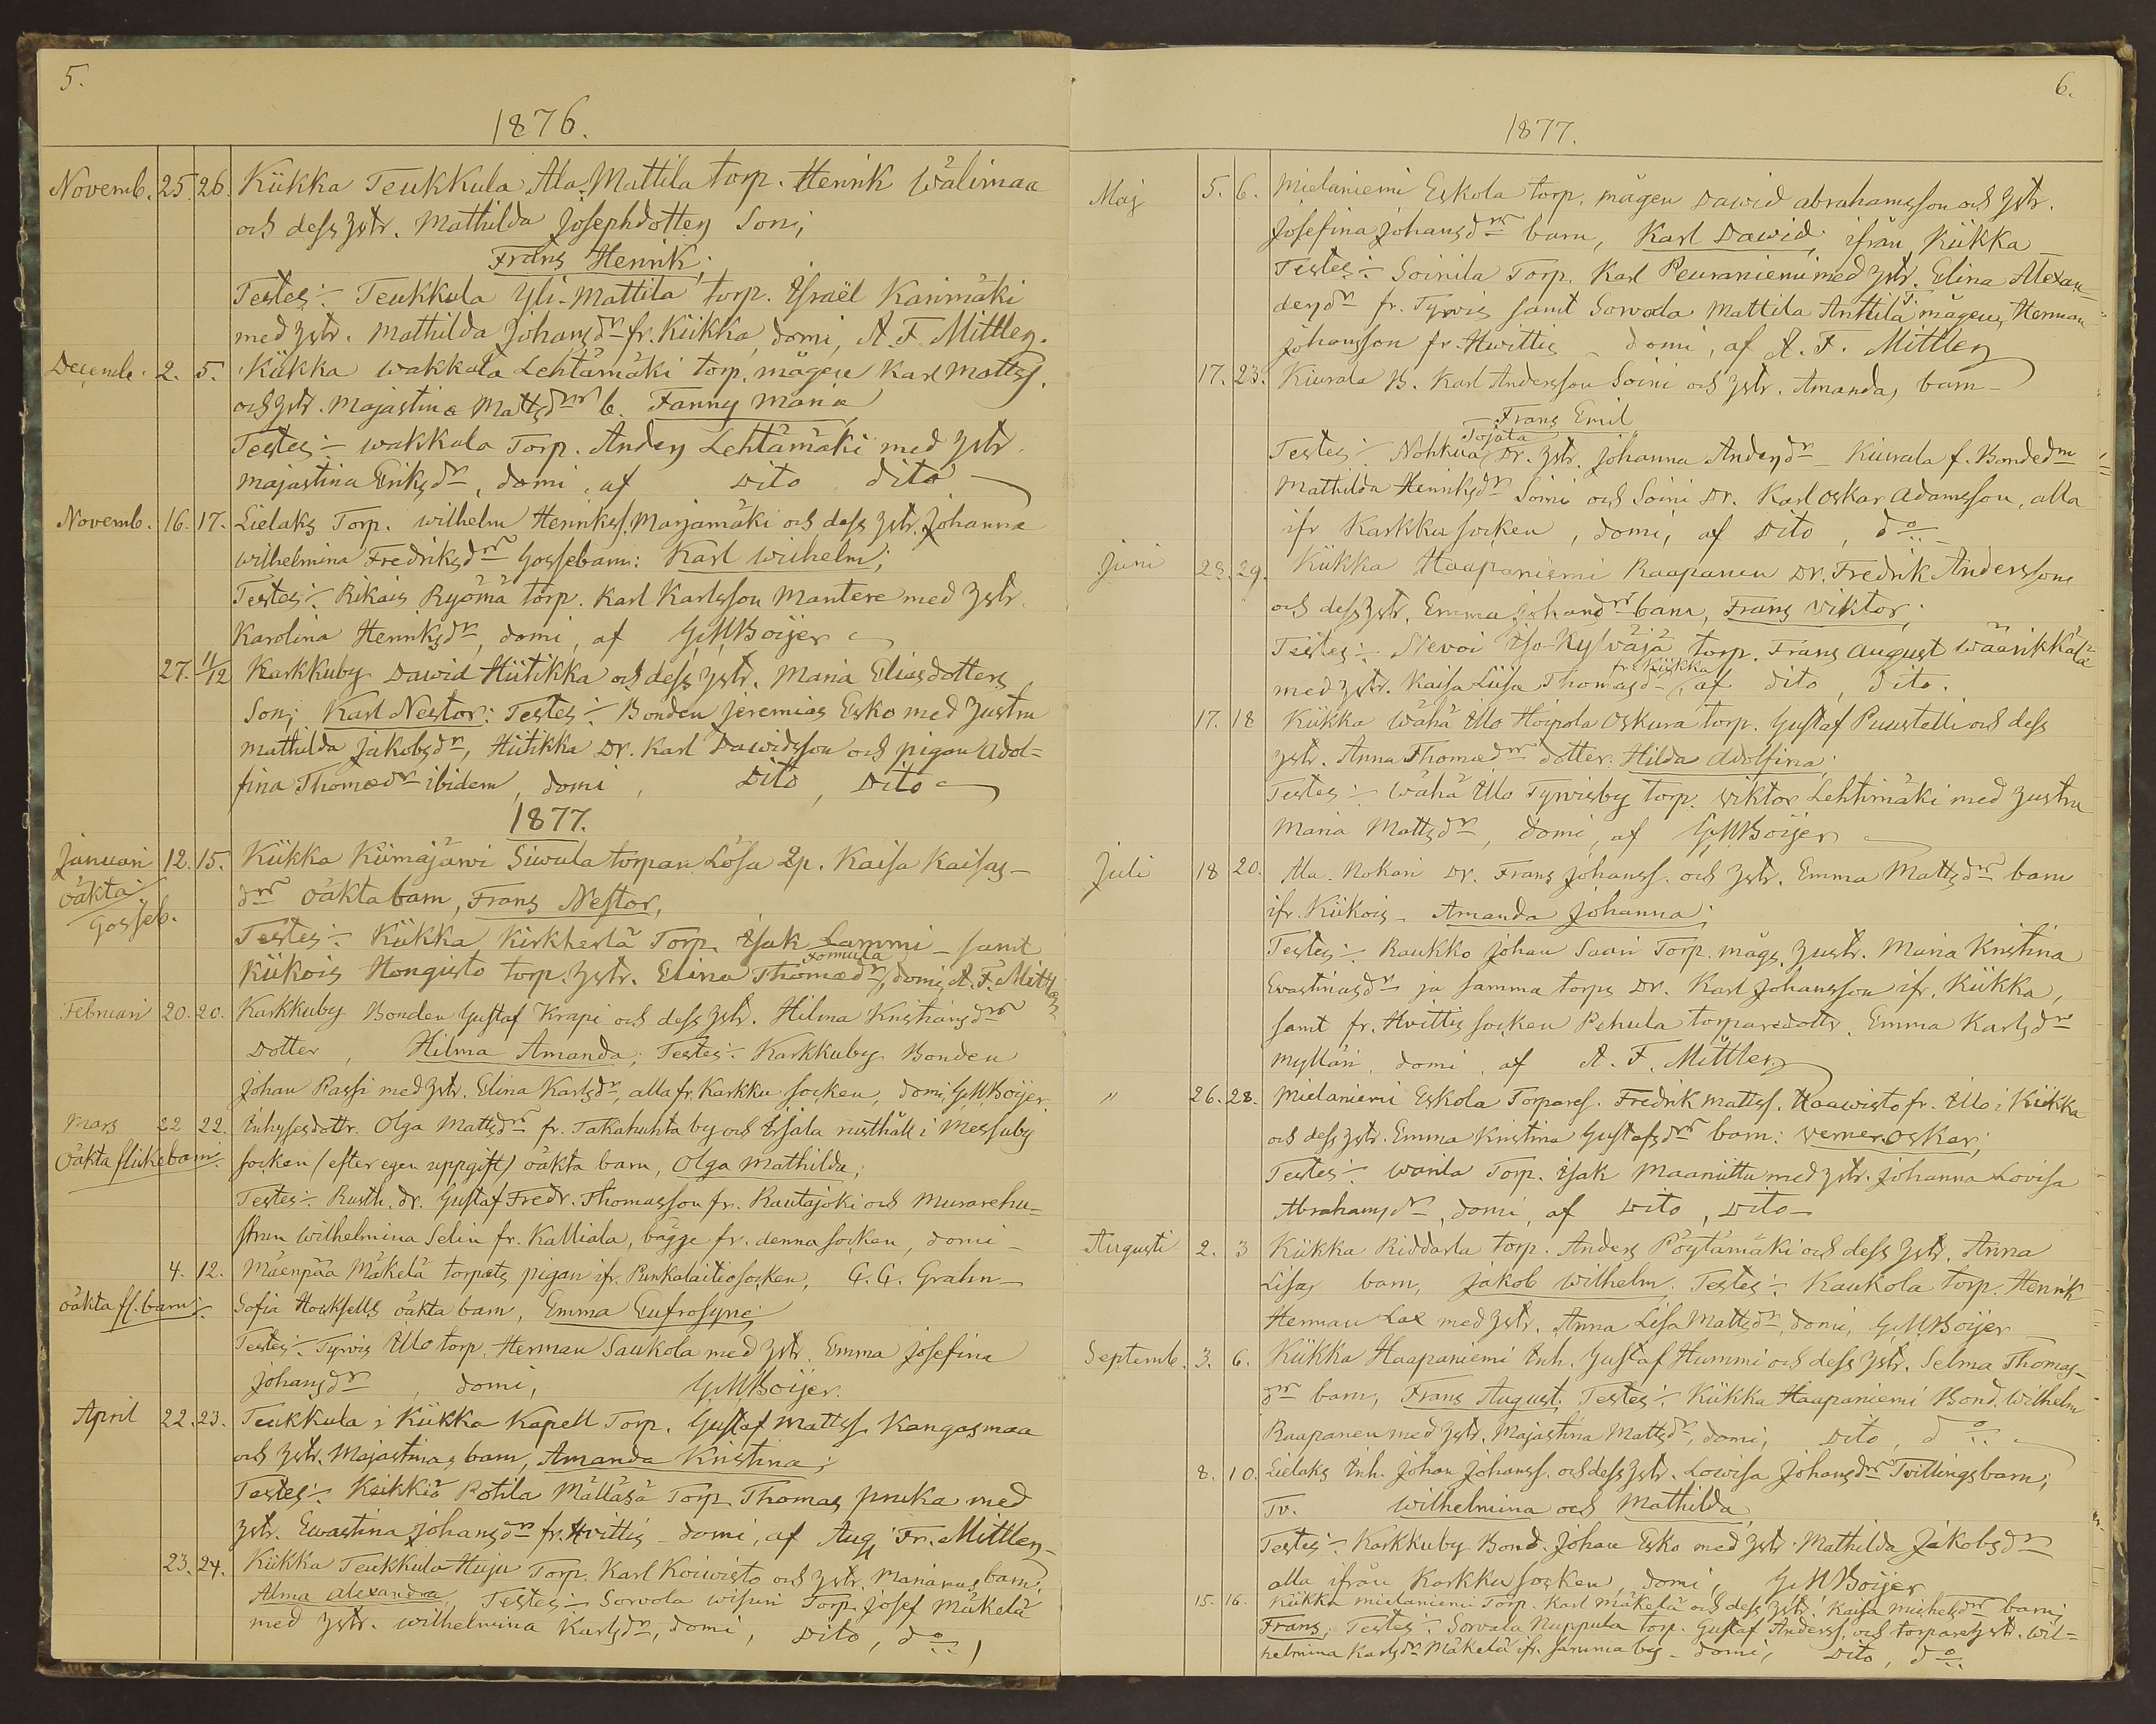 5.
1876.
Novemb. 25. 26. Kiikka Teukkula Ala-Mattila torp. Henrik Wälimaa
och dess hstr. Mathilda Josephdotters Son;
Frans Henrik;
Testes:- Teukkula Yli-Mattila torp. Israël Karimäki
med hstr. Mathilda Johansdr fr. Kiikka, domi, A. F. Mittler.
Decemb. 2. 5. Kiikka Wakkala Lehtämäki torp. mågen Karl Mattss.
och hstr. Majastina Mattsdrs b. Fanny Maria
Testes:- Wakkala Torp. Anders Lehtämäki med hstr.
Majastina Eriksdr, domi, af Dito Dito
Novemb. 16. 17. Lielaks Torp. Wilhelm Henrikss. Marjamäki och dess hstr. Johanna
Wilhelmina Fredriksdrs Gossebarn: Karl Wilhelm;
Testes:- Rikais Ryömä torp. Karl Karlsson Mantere med hstr.
Karolina Henriksdr, domi, af G. M. Boijer
27. 11/12 Karkkuby Dawid Hiitikka och dess hstr. Maria Eliasdotters
Son; Karl Nestor: Testes:- Bonden Jeremias Esko med hustru
Mathilda Jakobsdr, Hiitikka Dr. Karl Dawidsson och pigan Adol=
fina Thomædr ibidem, domi, Dito, Dito
1877.
Januari 12. 15. Kiikka Kiimajärwi Siwula torpan Lösa Qp. Kaisa Kaisas-
oäkta drs oäkta barn, Frans Nestor,
Gosseb.
Testes:- Kiikka Kirkherlä Torp. Isak Lammi - samt
Tomula
Kiikois Hongisto torp. hstr. Elina Thomædr, domi, A. F. Mittler
Februari 20. 20. Karkkuby Bonden Gustaf Krapi och dess hstr. Hilma Kristiansdrs
Dotter, Hilma Amanda; Testes:- Karkkuby Bonden
Johan Passi med hstr. Elina Karlsdr, alla fr. Karkku socken, domi, G. M. Boijer.
Mars 22 22. Inhysesdottr. Olga Mattsdrs fr. Takahuhta by och Erjala rusthåll i Messuby
Oäkta flickebarn: socken (efter egen uppgift) oäkta barn, Olga Mathilda;
Testes:- Rusth. dr. Gustaf Fredr. Thomasson fr. Rautajoki och Murarehu=
strun Wilhelmina Selin fr. Kalliala, bägge fr. denna socken, domi -
4. 12. Mäenpää Mäkelä torpets pigan ifr. Punkalaitio socken, G. G. Grahn
oäkta fl. barn: Sofia Hocksells oäkta barn, Emma Eufrosyne;
Testes:- Tyrvis Ullo torp. Herman Saukola med hstr. Emma Josefina
Johansdr, domi, G. M. Boijer.
April 22. 23. Teukkula i Kiikka Kapell Torp. Gustaf Mattss. Kangasmaa
och hstr. Majastinas barn, Amanda Kristina;
Testes:- Keikkiä Potila Mälläsä Torp. Thomas Pruka med
hstr. Ewastina Johansdr fr. Hvittis - domi, af Aug. Fr. Mittler -
23. 24. Kiikka Teukkula Huju Torp. Karl Koiwisto och hstr. Mariamas barn,
Alma Alexandra, Testes:- Sorvola Wisuri Torp. Josef Mäkelä
med hstr. Wilhelmina Karlsdr, domi, Dito, do
6.
1877.
Maj 5. 6. Mielaniemi Eskola torp. mågen Dawid Abrahamsson och hstr.
Josefina Johansdrs barn, Karl Dawid; ifrån Kiikka
Testes:- Soinila Torp. Karl Peuraniemi med hstr. Elina Alexan=
dersdr fr. Tyrvis samt Sorvola Mattila Anttila T. mågen, Herman
Johansson fr. Hwittis - domi, af A. F. Mittler
17. 23. Kiurala B. Karl Andersson Soini och hstr. Amandas barn -
Frans Emil
Tojota
Testes:- Nohkua Dr. hstr. Johanna Andersdr - Kiurala f. Bondedr
Mathilda Henriksdr Soini och Soini Dr. Karl Oskar Adamsson, alla
ifr Karkku socken, domi, af Dito, do
Juni 28. 29. Kiikka Haapaniemi Raapanen Dr. Fredrik Anderssons
och dess hstr. Emma Johansdrs barn, Frans Viktor;
Testes:- Nevoi Iso-Kylväjä torp. Frans August Wäärikkälä
fr. Kiikka
med hstr. Kaisa Liisa Thomasdr, af dito, dito.
17. 18 Kiikka Wähä Ulo Hoipola Oskura torp. Gustaf Puustelli och dess
hstr. Anna Thomædrs dotter. Hilda Adolfina;
Testes:- Wähä Ullo Tyrvisby torp. Viktor Lehtimäki med hustru
Maria Mattsdr, domi, af G. M. Boijer
Juli 18 20. Ala-Nokari Dr. Frans Johanss. och hstr. Emma Mattsdrs barn
ifr. Kiikois - Amanda Johanna;
Testes:- Raukko Johan Saari Torp. mågs. hustr. Maria Kristina
Ewastinasdr ja samma torps Dr. Karl Johansson ifr. Kiikka,
samt fr. Hvittis socken Pehula torparedottr. Emma Karlsdr
Mylläri, domi, af A. F. Mittler
" 26. 28. Mielaniemi Eskola Torpares. Fredrik Mattss. Haawisto fr. Ulo i Kiikka
och dess hstr. Emma Kristina Gustafsdrs barn: Verner Oskar;
Testes:- Warila Torp. Isak Maanittu med hstr. Johanna Lovisa
Abrahamsdr, domi, af Dito, Dito -
Augusti 2. 3 Kiikka Riddarla torp. Anders Pöytämäki och dess hstr. Anna
Lisas barn, Jakob Wilhelm; Testes:- Kaukola torp. Henrik
Herman Lax med hstr. Anna Lisa Mattsdr, domi, G. M. Boijer
Septemb. 3. 6. Kiikka Haapaniemi Inh. Gustaf Hummi och dess hstr. Selma Thomas-
drs barn, Frans August; Testes:- Kiikka Haapaniemi Bond. Wilhelm
Raapanen med hstr. Majastina Mattsdr, domi, Dito, do
8. 10. Lielaks Inh. Johan Johanss. och dess hstr. Lowisa Johansdrs Tvillingsbarn;
Tv. Wilhelmina och Mathilda
Testes:- Karkkuby Bond. Johan Esko med hstr. Mathilda Jakobsdr
alla ifrån Karkku socken, domi, G. M. Boijer
15. 16. Kiikka Mielaniemi Torp. Karl Mäkelä och dess hstr. Kaisa Michelsdrs barn;
Frans; Testes:- Sorvala Nuppula torp. Gustaf Anderss. och torpare hstr. Wil=
helmina Karlsdr Mäkelä ifr. samma by - domi, Dito, do